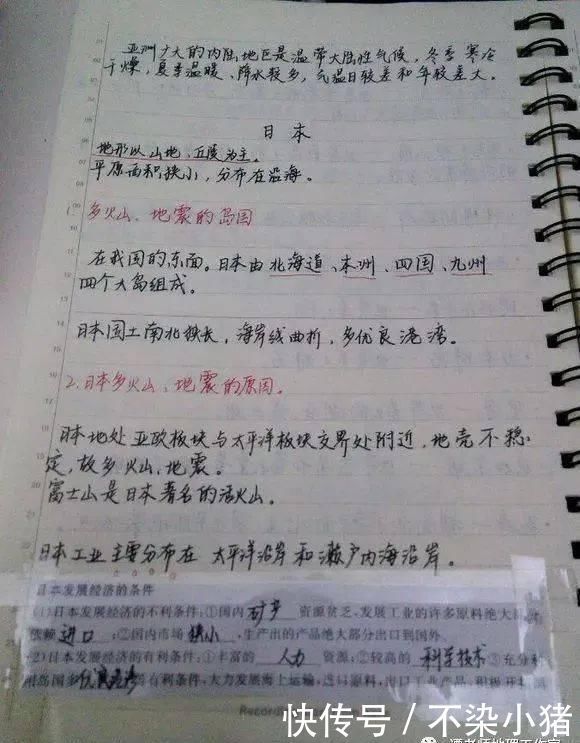 亚洲广大的内陆地区是温带大陆性气候，冬季寒冷
干燥，夏季温暖、降水较多，气温日较差和年较差大。
日本
地形以山地、丘陵为主。
平原面积狭小，分布在沿海。
1. 多火山、地震的岛国
在我国的东面。日本由北海道、本州、四国、九州
四个大岛组成。
日本国土南北狭长，海岸线曲折，多优良港湾。
2.日本多火山、地震的原因。
日本地处亚欧板块与太平洋板块交界处附近，地壳不稳
定，故多火山、地震。
富士山是日本著名的活火山。
日本工业主要分布在太平洋沿岸和濑户内海沿岸。
日本发展经济的条件
(1)日本发展经济的不利条件:①国内矿产资源贫乏,发展工业的许多原料绝大部分
依赖进口;②国内市场狭小,生产出的产品绝大部分出口到国外。
(2)日本发展经济的有利条件:①丰富的人力资源;②较高的科学技术③充分利
用岛国多优良港湾的有利条件,大力发展海上运输,进口原料,出口工业产品,积极开拓国
Record
快传号／不染小猪